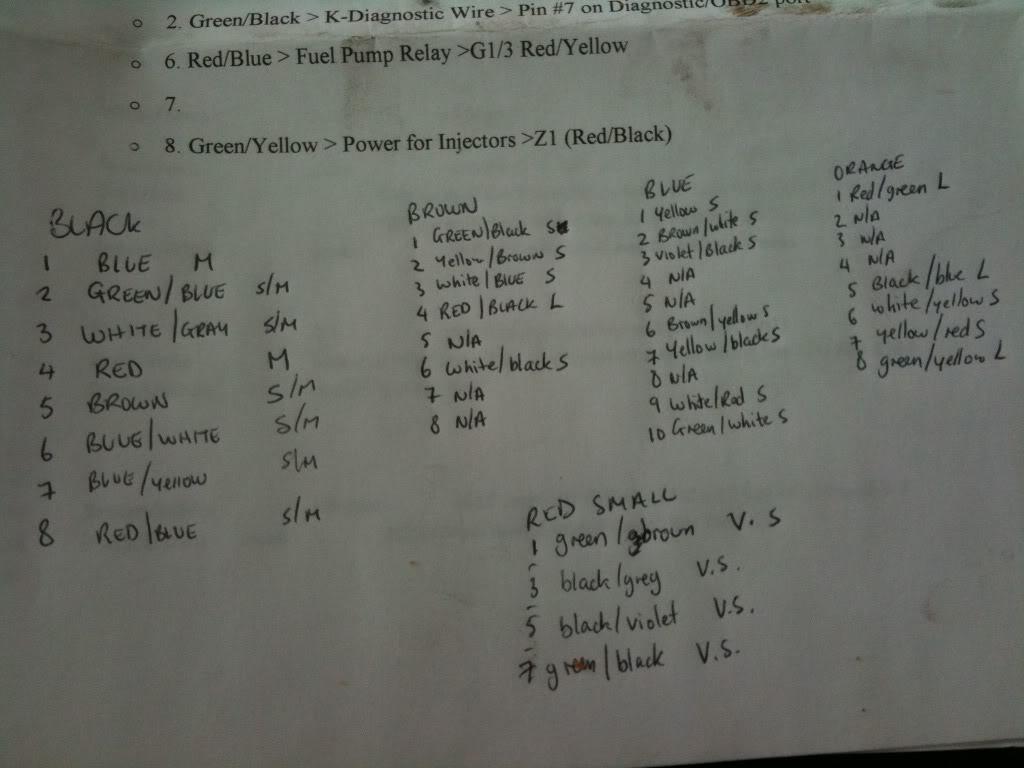 2. Green/Black > K-Diagnostic Wire > Pin #7 on Diagnostic/OBD2 port
6. Red/Blue > Fuel Pump Relay >G1/3 Red/Yellow
7.
8. Green/Yellow > Power for Injectors >Z1 (Red/Black)
BLACK
1 BLUE M
2 GREEN/BLUE S/M
3 WHITE/GRAY S/M
4 RED M
5 BROWN S/M
6 BLUE/WHITE S/M
7 BLUE/yellow S/M
8 RED/BLUE S/M
BROWN
1 GREEN/Black S
2 Yellow/Brown S
3 White/BLUE S
4 RED/BLACK L
5 N/A
6 White/black S
7 N/A
8 N/A
BLUE
1 Yellow S
2 Brown/white S
3 Violet/Black S
4 N/A
5 N/A
6 Brown/yellow S
7 Yellow/black S
8 N/A
9 White/Red S
10 Green/white S
ORANGE
1 Red/green L
2 N/A
3 N/A
4 N/A
5 Black/blue L
6 white/yellow S
7 yellow/red S
8 green/yellow L
RED SMALL
1 green/brown V.S
3 black/grey V.S.
5 black/violet V.S.
7 green/black V.S.